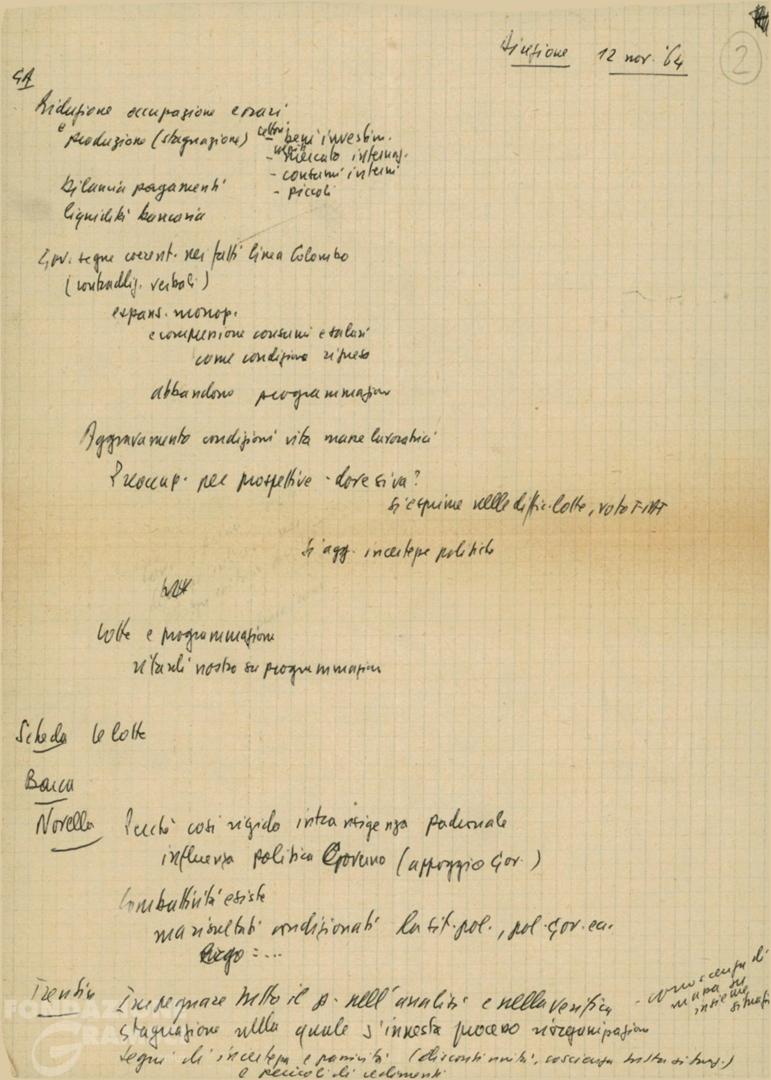 Direzione 12 nov. '64
2
GA
Riduzione occupazione e orari
e produzione (stagnazione) settori - beni investim.
- mercato internaz.
- consumi interni
- piccoli
bilancia pagamenti
liquidità bancaria
Gov. segue coerent. nei fatti linea Colombo
(contraddiz. verbali)
espans. monop.
e compressione consumi e salari
come condizione ripresa
abbandono programmazione
Aggravamento condizioni vita masse lavoratrici
Preoccup. per prospettive - dove si va?
si esprime nelle diffic. lotte, voto FIAT
si agg. incertezze politiche
lotte e programmazione
ritardi nostro su programmazione
Scheda le lotte
Novella Perché così rigida intransigenza padronale
influenza politica Governo (appoggio Gov.)
Combattività esiste
ma risultati condizionati la sit. pol., pol. gov. ec.
ergo = ...
Trentin Impegnare tutto il p. nell'analisi e nella verifica - conoscenza di
massa su
insieme
situaz.
stagnazione nella quale s'innesta processo riorganizzazione
segni di incertezza e passività (discontinuità, coscienza tutta situaz.)
e pericoli di cedimenti
FONDAZIONE
GRAMSCI